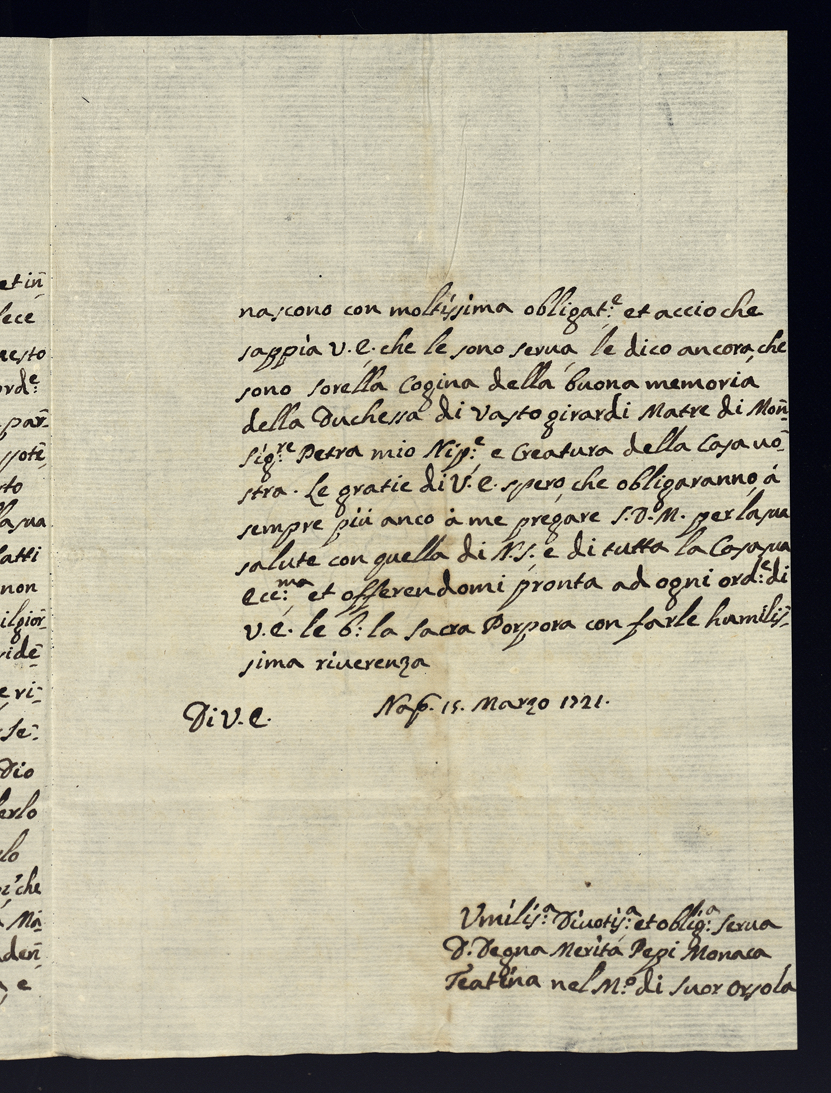 et iñ
lece
uesto
ord:e
par
ssoti
sto
la sua
latti
non
il gior
vide
e ri-
se-
Dio
erlo
rlo
che
Ma
den
, e
nascono con moltissima obligat:e et accio che
sappia V. E. che le sono serua le dico ancora, che
sono sorella Cogina della buona memoria
della Duchessa di Vastogirardi Matre di Moñ
sig:re Petra mio Nip:e e Creatura della Casa uo-
stra. Le gratie di V. E. spero, che obligaranno à
sempre più anco à me pregare S. D. M. per la sua
salute con quella di N. S. e di tutta la Casa sua
Ecc:ma et offerendomi pronta ad ogni ord:e di
V. E. le b: la sacra Porpora con farle humilis-
sima riuerenza
Di V. E. Nap. 15. Marzo 1721.
Vmilis:a Diuotis:a et oblig:a serua
D. Degna Merita Pepi Monaca
Teatina nel M:o di Suor Orsola